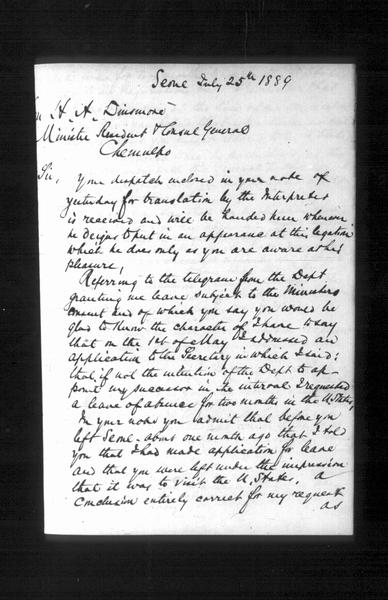 Seoul July 25th 1889
H. A. Dinsmore
Minister Resident & Consul General
Chemulpo
Sir,
Your despatch enclosed in your note of
yesterday for translation by the Interpreter
is received and will be handed him whenever
he deigns to put in an appearance at this legation
which he does only as you are aware at his
pleasure,
Referring to the telegram from the Dept
granting me leave subject to the Ministers
consent and of which you say you would be
glad to know the character of, I have to say
that on the 1st of May I addressed an
application to the Secretary in which I said:
that if not the intention of the Dept to ap-
point my successor in the interval I requested
a leave of absence for two months in the U. States,
In your note you admit that before you
left Seoul about one month ago that I told
you that I had made application for leave
and that you were left under the impression
that it was to visit the U. States, a
conclusion entirely correct for my request
as